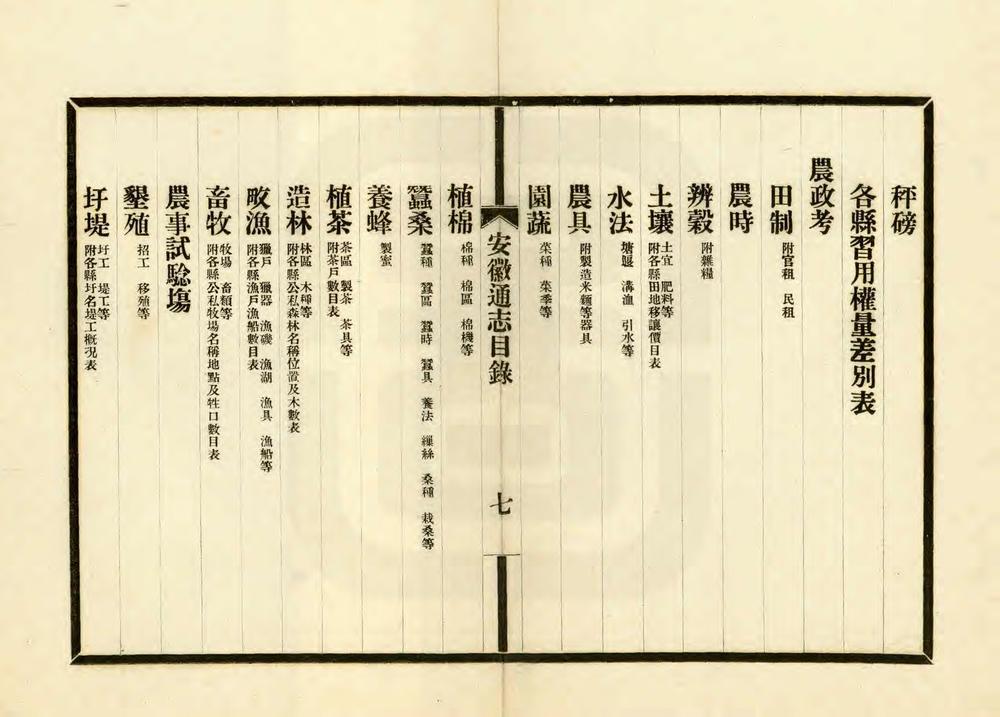 秤磅
各縣習用權量差別表
農政考
田制 附官租 民租
農時
辨穀 附雜糧
土壤 土宜 肥料等 附各縣田地移讓價目表
水法 塘堰 溝洫 引水等
農具 附製造米麵等器具
園蔬 菜種 菜季等
安徽通志目錄 七
植棉 棉種 棉區 棉機等
蠶桑 蠶種 蠶區 蠶時 蠶具 養法 繅絲 桑種 栽桑等
養蜂 製蜜
植茶 茶區 製茶 茶具等 附茶戶數目表
造林 林區 木種等 附各縣公私森林名稱位置及木數表
畋漁 獵戶 獵器 漁磯 漁湖 漁具 漁船等 附各縣漁戶漁船數目表
畜牧 牧場 畜類等 附各縣公私牧場名稱地點及牲口數目表
農事試驗場
墾殖 招工 移殖等
圩堤 圩工 堤工等 附各縣圩名堤工概況表